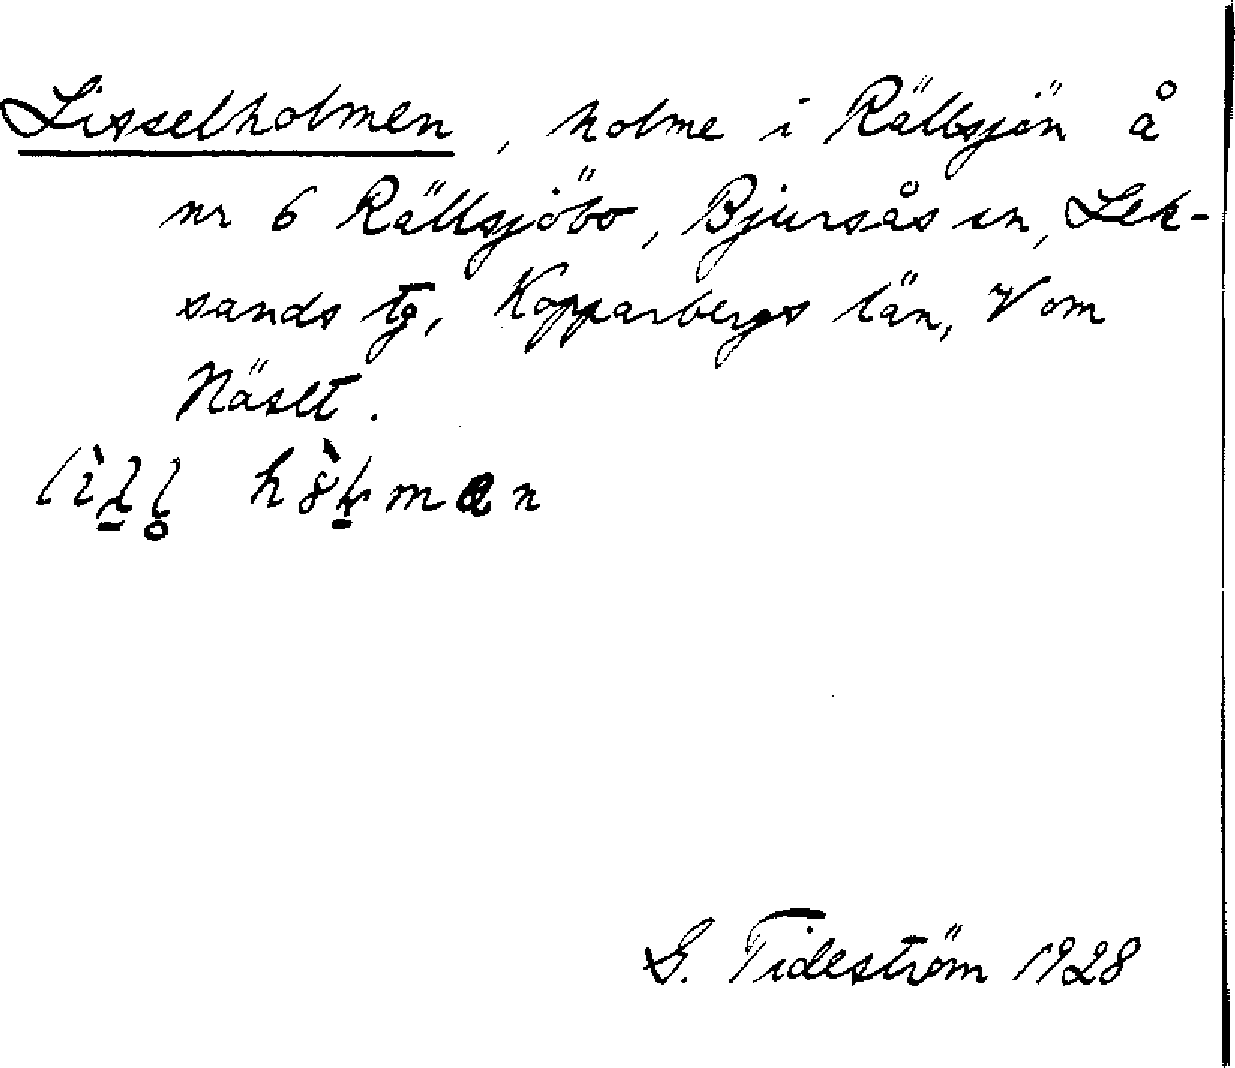 Lisselholmen, holme i Rällsjön å
nr 6 Rällsjöbo, Bjursås sn, Lek-
sands tg, Kopparbergs län, V om
Näset.
G. Tideström 1928